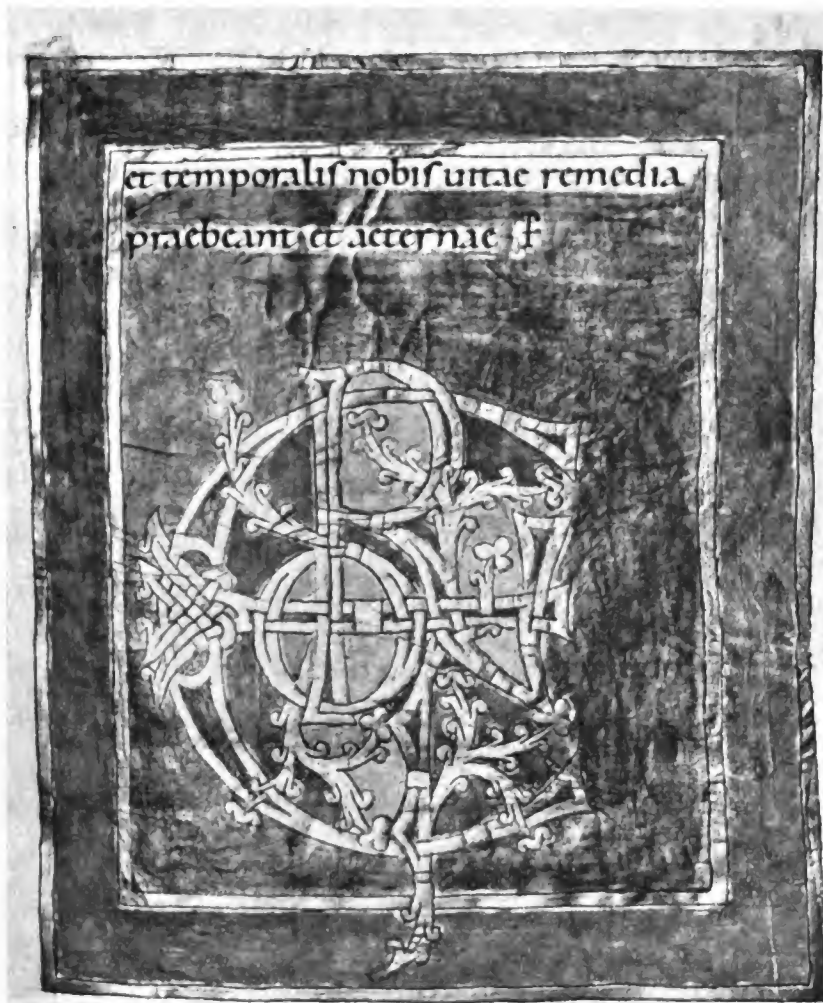 et temporaliſ nobiſ uitae remedia
praebeant et aeternae